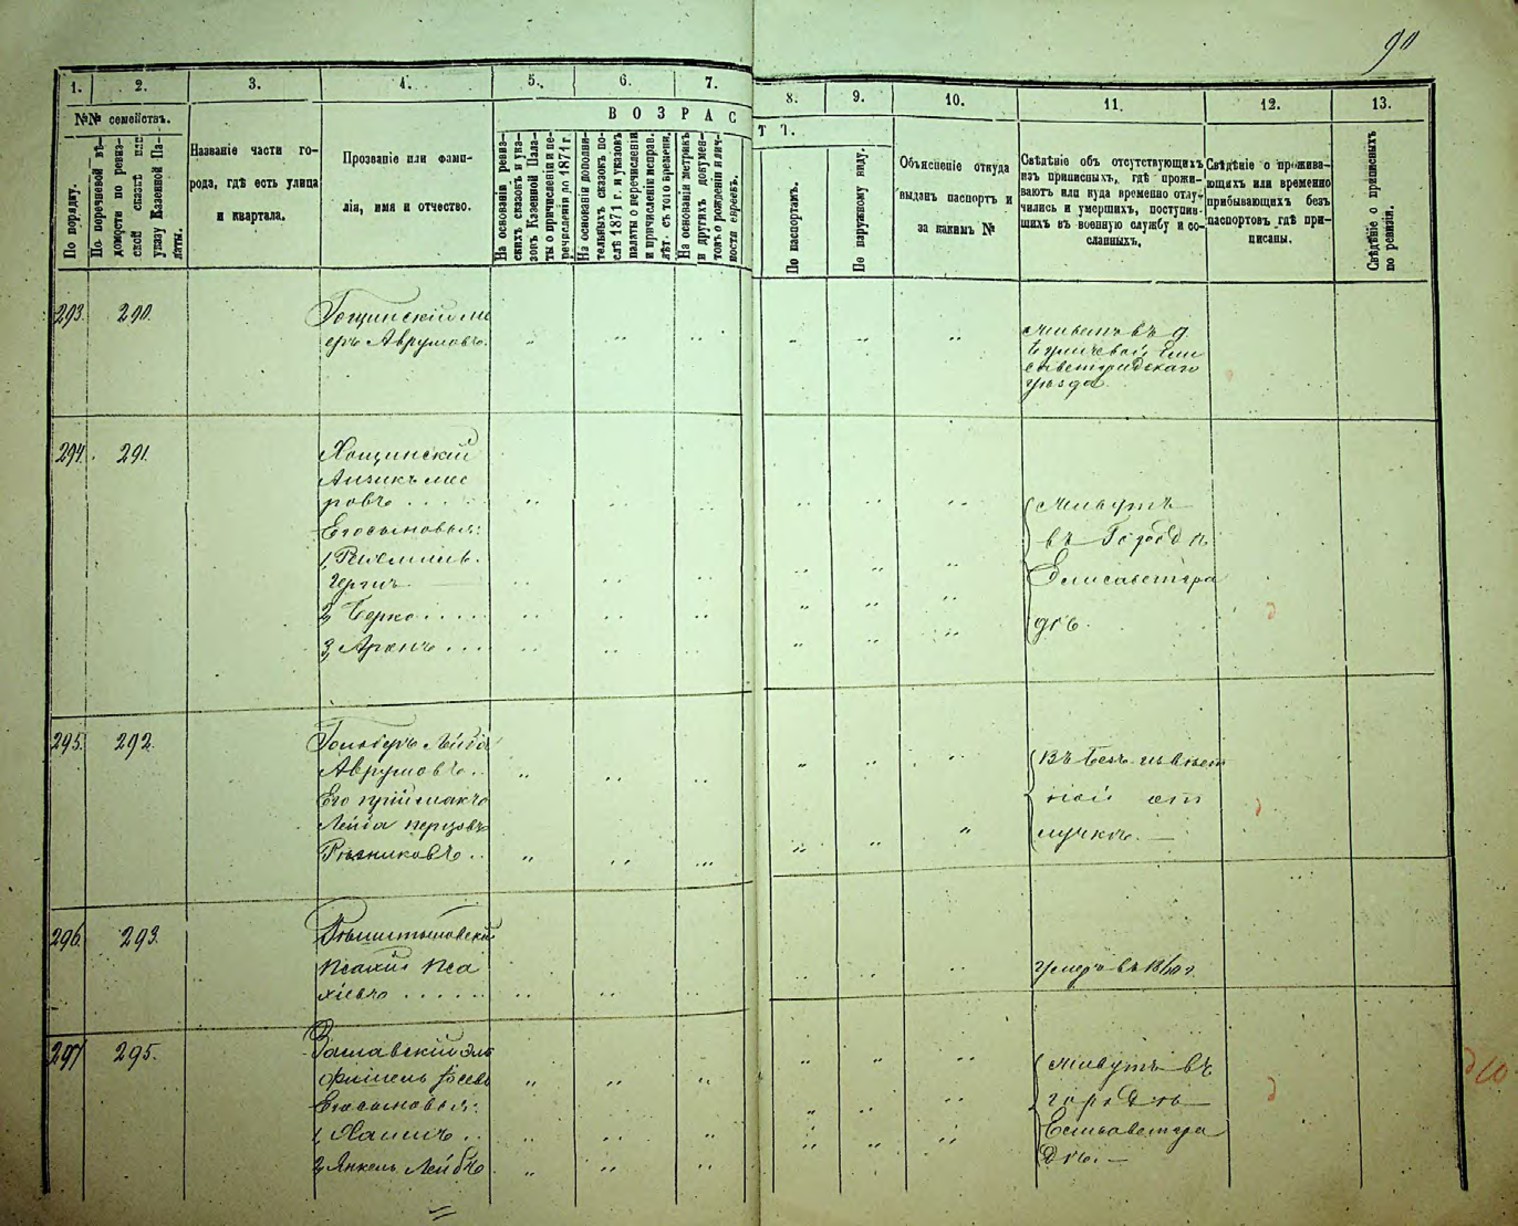 90
1. 2. 3. 4. 5. 6. 7. 8. 9. 10. 11. 12. 13.
№№ семействъ.
По порядку.
По поочередной вѣ-
домости по ревиз-
ской сказкѣ или
указу Казенной Па-
латы.
Названіе части го-
рода, гдѣ есть улица
и квартала.
Прозваніе или фами-
лія, имя и отчество.
ВОЗРАС
Т Ъ.
На основаніи ревиз-
скихъ сказокъ и ука-
зовъ Казенной Пала-
ты о причисленіи и пе-
речисленіи до 1871 г.
На основаніи дополни-
тельныхъ сказокъ по-
слѣ 1871 г. и указовъ
палаты о перечисленіи
и причисленіи исправ.
лѣт. съ того времени.
На основаніи метрикъ
и другихъ докумен-
товъ о рожденіи и лич-
ности евреевъ.
По паспортамъ.
По наружному виду.
Объясненіе откуда
выданъ паспортъ и
за какимъ №
Свѣдѣніе объ отсутствующихъ
изъ приписныхъ, гдѣ прожи-
ваютъ или куда временно отлу-
чились и умершихъ, поступив-
шихъ въ военную службу и со-
сланныхъ.
Свѣдѣніе о прожива-
ющихъ или временно
прибывающихъ безъ
паспортовъ гдѣ при-
писаны.
Свѣдѣніе о приписныхъ
по ревизіи.
293. 290.
Гощинскій Ме
еръ Аврумовъ.
Живетъ въ д
Ели
саветградскаго
уѣзда.
294. 291.
Хощинскій
Айзикъ Мее
ровъ....
Его сыновья:
1,
Герши
2, Берко.....
3, Аронъ...
Живутъ
въ Городѣ
Елисаветгра
дѣ.
295. 292.
Лейба
Аврумовъ..
Его пріймакъ
Лейба Перцовъ
Рѣзниковъ..
Въ безъизвѣст
ной от
лучкѣ.
296. 293.
Псахій Пса
хіевъ......
Умеръ въ
297 295.
Заславскій Эль
Фишель Іосевъ
Его сыновья:
1, Хаимъ..
2, Янкель Лейбъ
Живутъ въ
городѣ
Елисаветгра
дѣ.